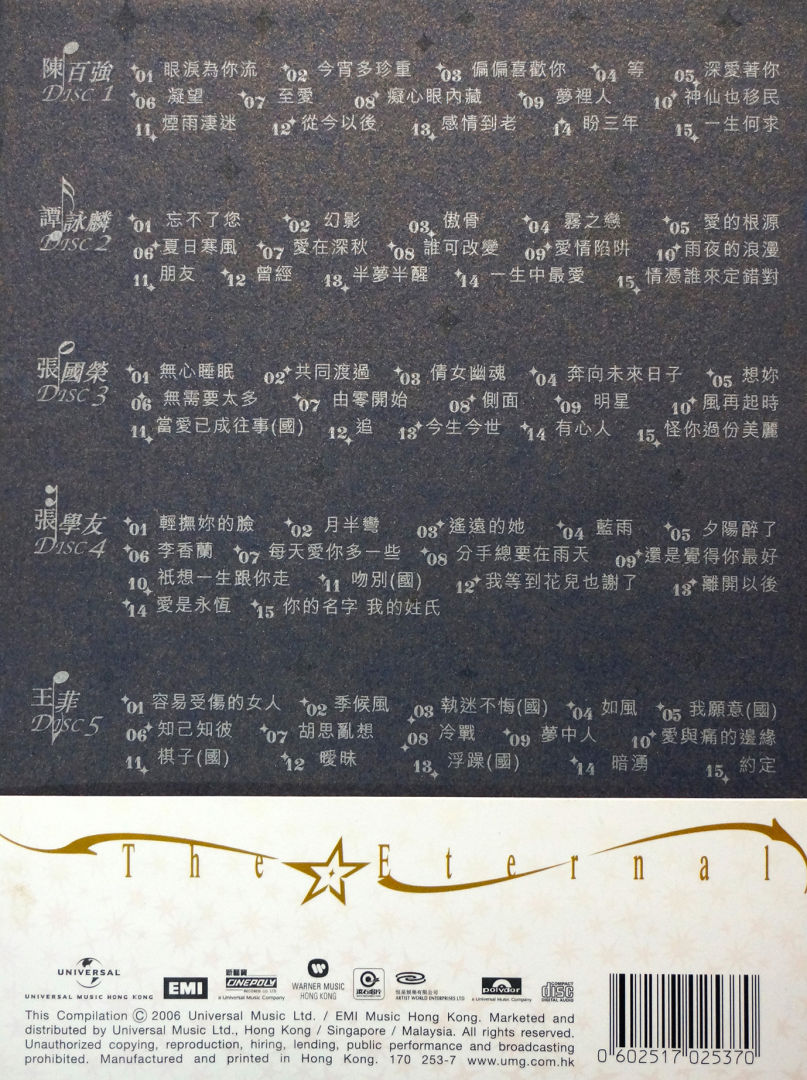 陳百強 01 眼淚為你流 02 今宵多珍重 03 偏偏喜歡你 04 等 05 深愛著你
DISC 1 06 凝望 07 至愛 08 癡心眼內藏 09 夢裡人 10 神仙也移民
11 煙雨淒迷 12 從今以後 13 感情到老 14 盼三年 15 一生何求
譚詠麟 01 忘不了您 02 幻影 03 傲骨 04 霧之戀 05 愛的根源
DISC 2 06 夏日寒風 07 愛在深秋 08 誰可改變 09 愛情陷阱 10 雨夜的浪漫
11 朋友 12 曾經 13 半夢半醒 14 一生中最愛 15 情憑誰來定錯對
張國榮 01 無心睡眠 02 共同渡過 03 倩女幽魂 04 奔向未來日子 05 想妳
DISC 3 06 無需要太多 07 由零開始 08 側面 09 明星 10 風再起時
11 當愛已成往事(國) 12 追 13 今生今世 14 有心人 15 怪你過份美麗
張學友 01 輕撫妳的臉 02 月半彎 03 遙遠的她 04 藍雨 05 夕陽醉了
DISC 4 06 李香蘭 07 每天愛你多一些 08 分手總要在雨天 09 還是覺得你最好
10 祇想一生跟你走 11 吻別(國) 12 我等到花兒也謝了 13 離開以後
14 愛是永恆 15 你的名字 我的姓氏
王菲 01 容易受傷的女人 02 季候風 03 執迷不悔(國) 04 如風 05 我願意(國)
DISC 5 06 知己知彼 07 胡思亂想 08 冷戰 09 夢中人 10 愛與痛的邊緣
11 棋子(國) 12 曖昧 13 浮躁(國) 14 暗湧 15 約定
The Eternal
UNIVERSAL
UNIVERSAL MUSIC HONG KONG
EMI
新藝寶
CINEPOLY
RECORDS CO LTD
a Universal Music Company
WARNER MUSIC
HONG KONG
滾石唱片
恒星娛樂有限公司
ARTIST WORLD ENTERPRISES LTD
polydor
a Universal Music Company
COMPACT
disc
DIGITAL AUDIO
This Compilation Ⓒ 2006 Universal Music Ltd. / EMI Music Hong Kong. Marketed and
distributed by Universal Music Ltd., Hong Kong / Singapore / Malaysia. All rights reserved.
Unauthorized copying, reproduction, hiring, lending, public performance and broadcasting
prohibited. Manufactured and printed in Hong Kong. 170 253-7 www.umg.com.hk
0 602517 025370